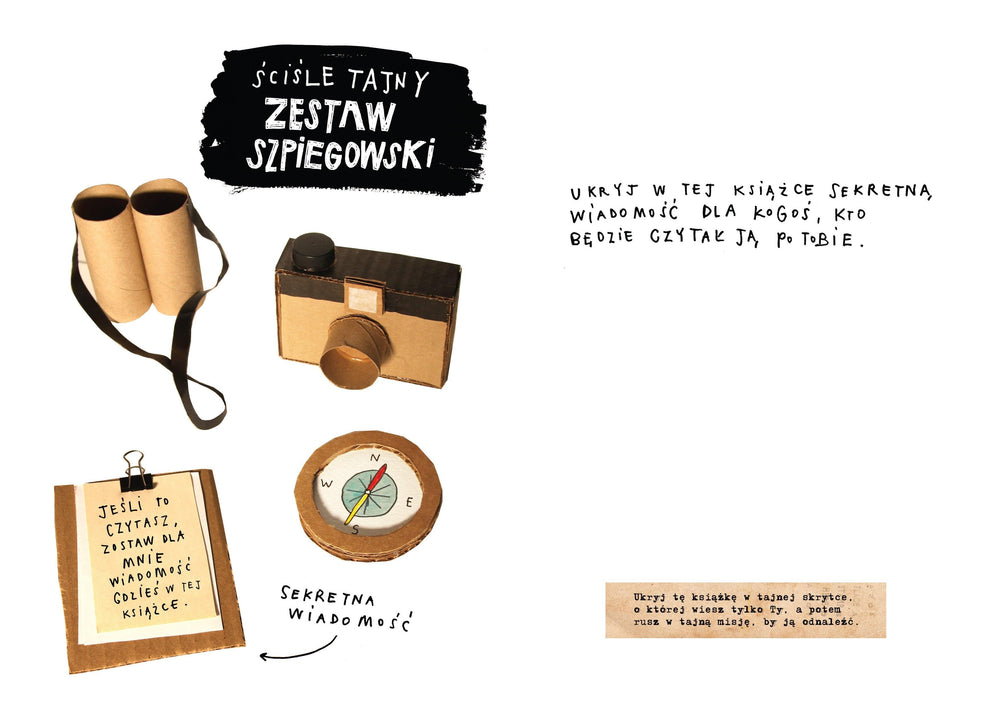 ŚCIŚLE TAJNY
ZESTAW
SZPIEGOWSKI
UKRYJ W TEJ KSIĄŻCE SEKRETNĄ
WIADOMOŚĆ DLA KOGOŚ, KTO
BĘDZIE CZYTAŁ JĄ PO TOBIE.
N
W
E
S
JEŚLI TO
CZYTASZ,
ZOSTAW DLA
MNIE
WIADOMOŚĆ
GDZIEŚ W TEJ
KSIĄŻCE.
SEKRETNA
WIADOMOŚĆ
Ukryj tę książkę w tajnej skrytce,
o której wiesz tylko Ty, a potem
rusz w tajną misję, by ją odnaleźć.